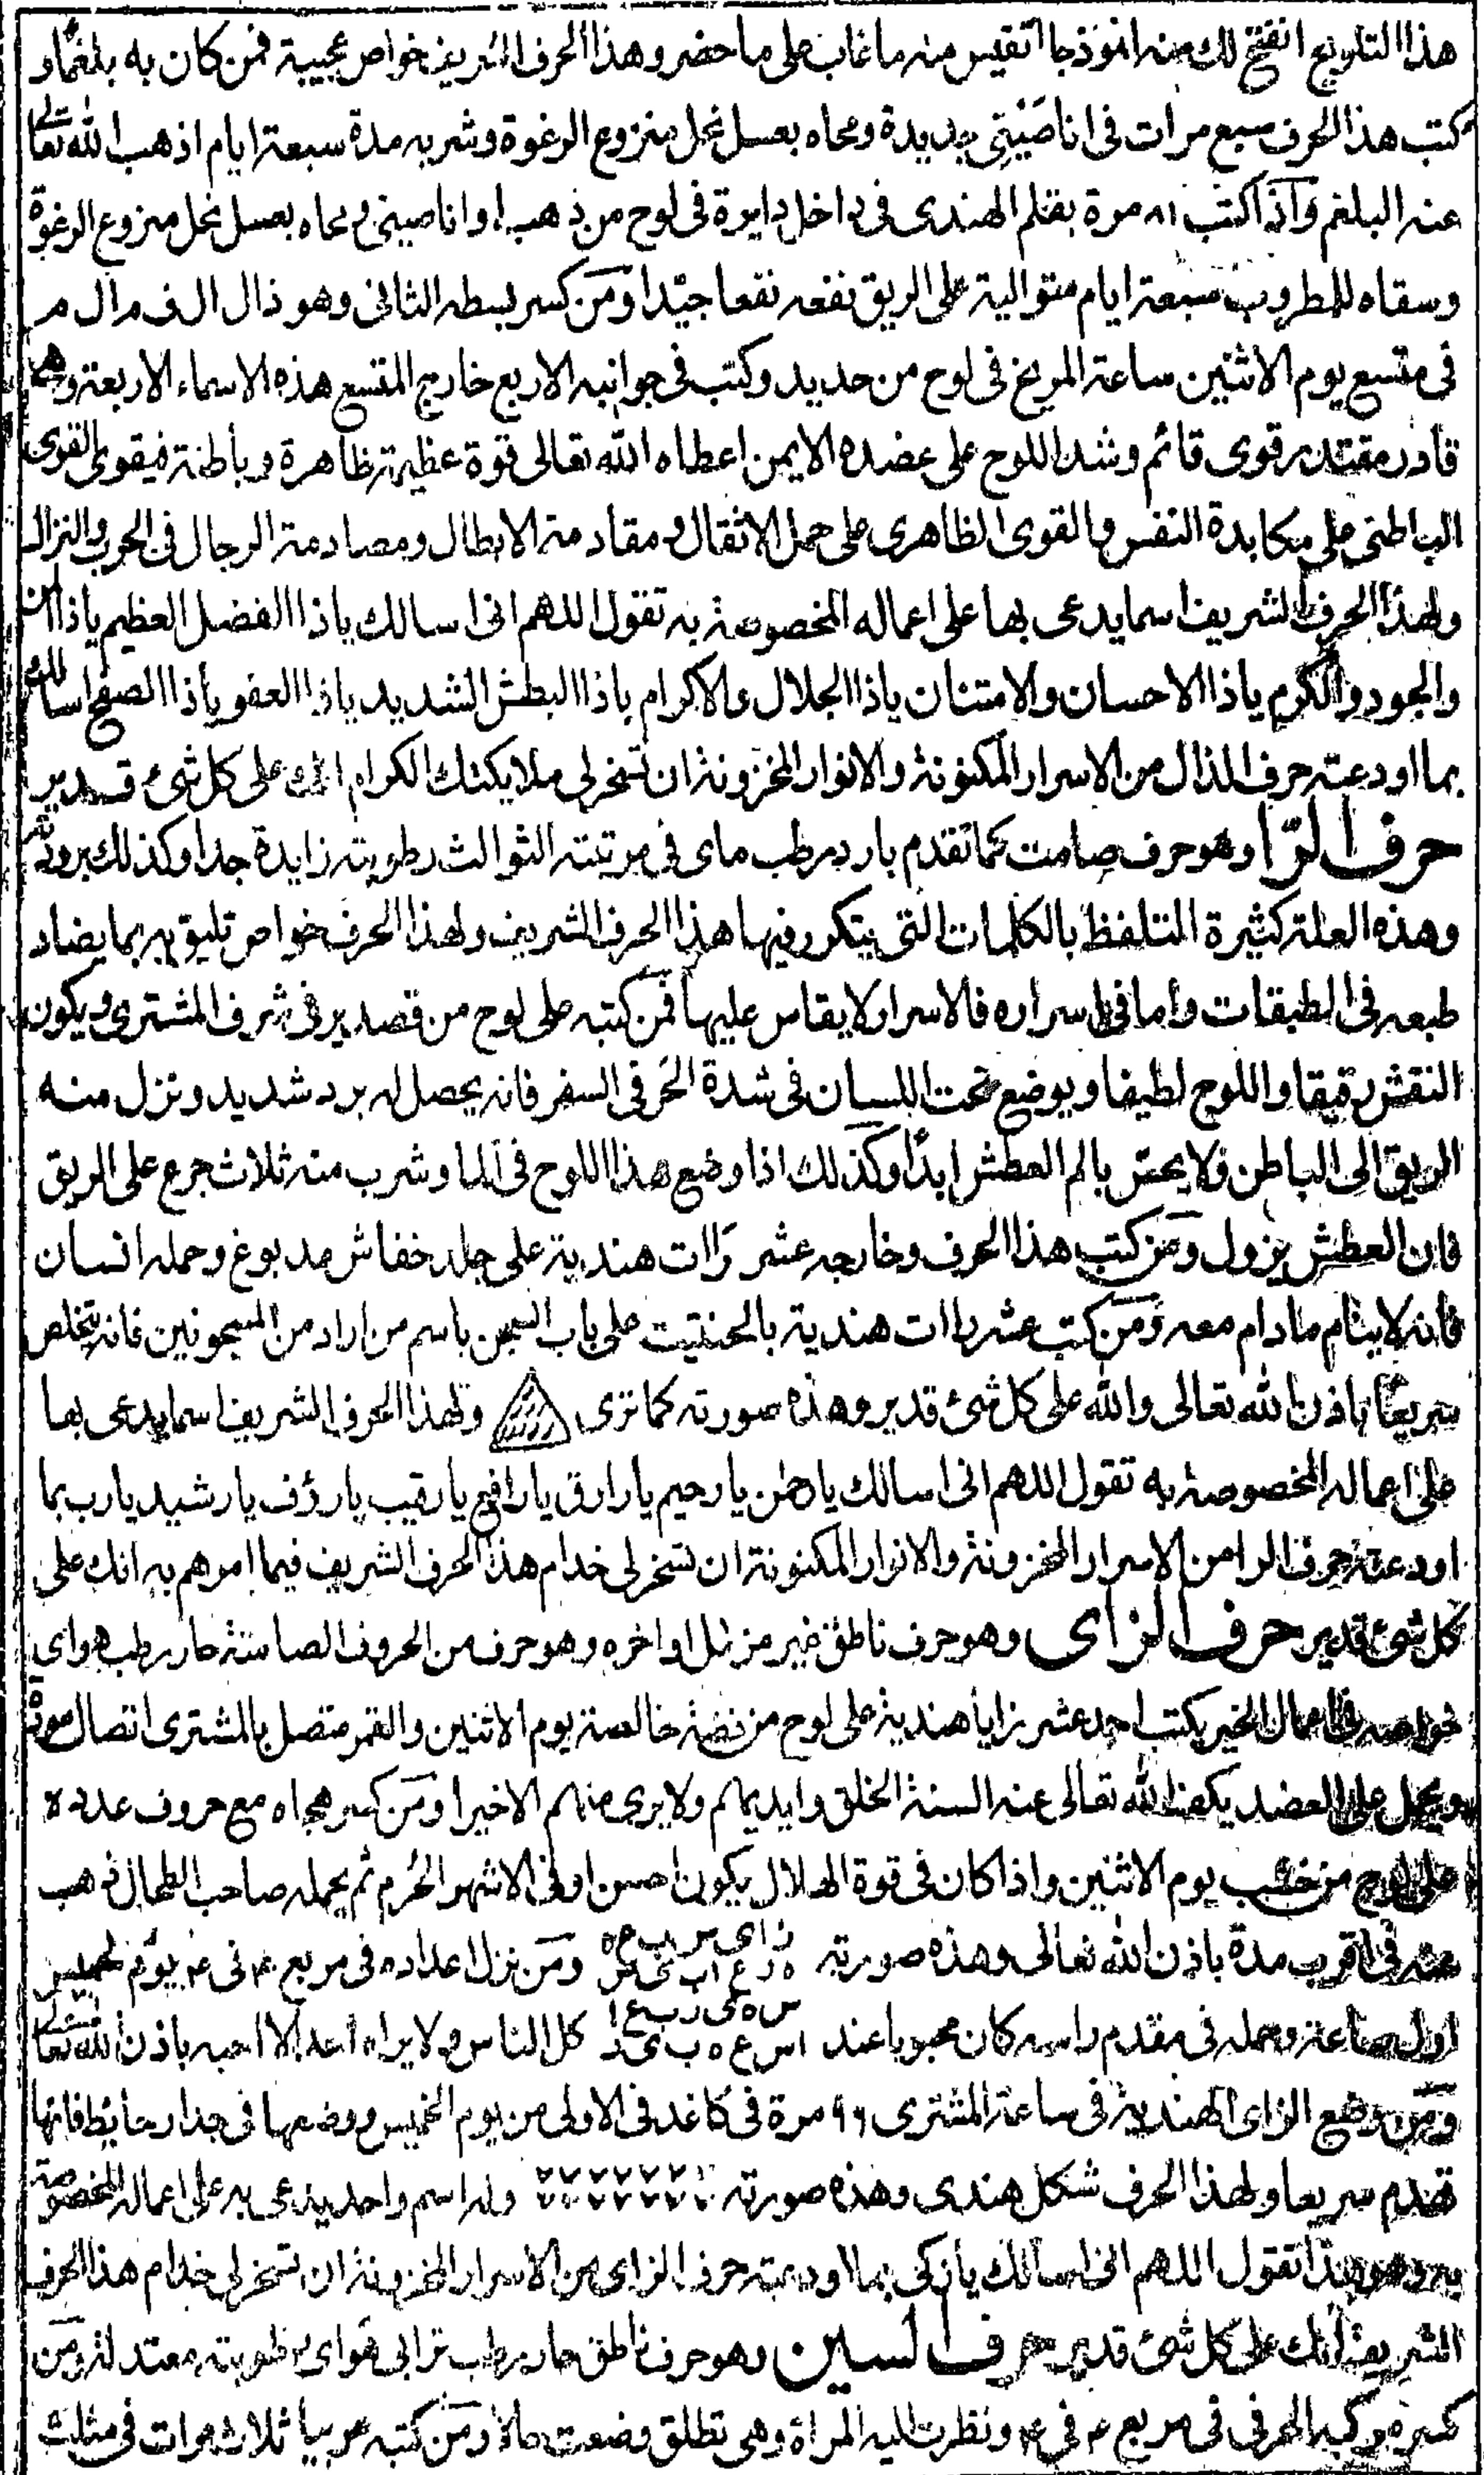 هذا التلويح انفتح لك منه انموذجا تقيس منه ما غاب على ما حضر وهذا الحرف الشريف خواص عجيبة فمن كان به بلغما و
كتب هذا الحرف سبع مرات فى انا صينى جديدة ومحاه بعسل نحل منزوع الرغوة وشربه مدة سبعة ايام اذهب الله تعالى
عنه البلغم وآذا كتب ٨١ مرة بقلم الهندى فى داخل دايرة فى لوح من ذهب او انا صينى ومحاه بعسل نحل منزوع الرغوة
وسقاه للمطروب سبعة ايام متوالية على الريق نفعه نفعا جيدا ومن كسر بسطه الثانى وهو ذال ال ف م ال م
فى متسع يوم الاثنين ساعة المريخ فى لوح من حديد وكتب فى جوانبه الاربع خارج المتسع هذه الاسماء الاربعة وهى
قادر مقتدر قوى قائم وشد اللوح على عضده الايمن اعطاه الله تعالى قوة عظيمة ظاهرة وباطنة فيقوى القوى
الباطنى على مكابدة النفس والقوى الظاهرى على حمل الاثقال ومقادمة الابطال ومصادمة الرجال فى الحرب والنزال
ولهذا الحرف الشريف اسما يدعى بها على اعماله المخصوصة به تقول اللهم انى اسالك ياذا الفضل العظيم ياذا المن
والجود والكرم ياذا الاحسان والامتنان ياذا الجلال والاكرام ياذا البطش الشديد ياذا العفو ياذا الصفح اسالك
بما اودعته حرف الذال من الاسرار المكنونة والانوار المخزونة ان تسخر لى ملايكتك الكرام انك على كل شىء قدير
حرف الرّا وهو حرف صامت كما تقدم بارد رطب ماى فى مرتبته الثوالث رطوبته زايدة جدا وكذلك برودته
وهذه العلة كثيرة المتلفظ بالكلمات التى يتكرر فيها هذا الحرف الشريف ولهذا الحرف خواص تليق به بما يضاد
طبعه فى الطبقات واما فى اسراره فالاسرار لا يقاس عليها فمن كتبه على لوح من قصدير فى شرف المشترى ويكون
النقش رقيقا واللوح لطيفا ويوضع تحت اللسان فى شدة الحَر فى السفر فانه يحصل له برد شديد ونزل منه
الريق الى الباطن ولا يحس بالم العطش ابدًا وكذلك اذا وضع هذا اللوح فى الما وشرب منه ثلاث جرع على الريق
فان العطش يزول ومن كتب هذا الحرف وخارجه عشر رَاات هندية على جلد خفاش مدبوغ وحمله انسان
فانه لا ينام مادام معه ومن كتب عشر راات هندية بالحنتيت على باب السجن باسم من اراد من المسجونين فانه يتخلص
سريعًا باذن الله تعالى والله على كل شئ قدير وهذه صورته كما ترى ولهذا الحرف الشريف اسما يدعى بها
على اعماله المخصوصة به تقول اللهم انى اسالك يا رحمن يا رحيم يا رازق يا رافع يا رقيب يا رؤف يا رشيد يا رب بما
اودعته حرف الرا من الاسرار المخزونة والانوار المكنونة ان تسخر لى خدام هذا الحرف الشريف فيما امرهم به انك على
كل شئ قدير حرف الزاى وهو حرف ناطق اواخره وهو حرف من الحروف الصامتة حار رطب هواى
خواصه فى اعمال الخير يكتب احد عشر زايا هندية على لوح من فضة خالصة يوم الاثنين والقمر متصل بالمشترى اتصال مودة
ويحمل على العضد يكف الله تعالى عنه السنة الخلق وايديهم ولا يرى منهم الا خيرا ومن كسر هجاه مع حروف عدده
على لوح من خشب يوم الاثنين واذا كان فى قوة الهلال يكون احسن او فى الاشهر الحُرم ثم يحمله صاحب الطحال ذهب
عنه فى اقرب مدة باذن الله تعالى وهذه صورته ومن نزل اعداده فى مربع ٤ فى ٤ يوم الخميس
اول ساعة وحمله فى مقدم راسه كان محبوبا عند كل الناس ولا يراه احد الا احبه باذن الله تعالى
ومن وضع الزاى الهندية فى ساعة المشترى ٩٦ مرة فى كاغد فى الاولى من يوم الخميس ووضعها فى جدار حايط فانها
تهدم سريعا ولهذا الحرف شكل هندى وهذه صورته ٧٧٧٧٧٧٧ وله اسم واحد يدعى به على اعماله المخصوصة
به وهو هذا تقول اللهم انى اسالك يا زكى بما اودعته حرف الزاى من الاسرار المخزونة ان تسخر لى خدام هذا الحرف
الشريف انك على كل شئ قدير حرف السين وهو حرف ناطق حار رطب ترابى هواى رطوبته معتدلة ومن
كسره حرفى فى مربع ٤ فى ٤ ونظرت اليه المراة وهى تطلق وضعت حالا ومن كتبه عربيا ثلاث مرات فى مثلث